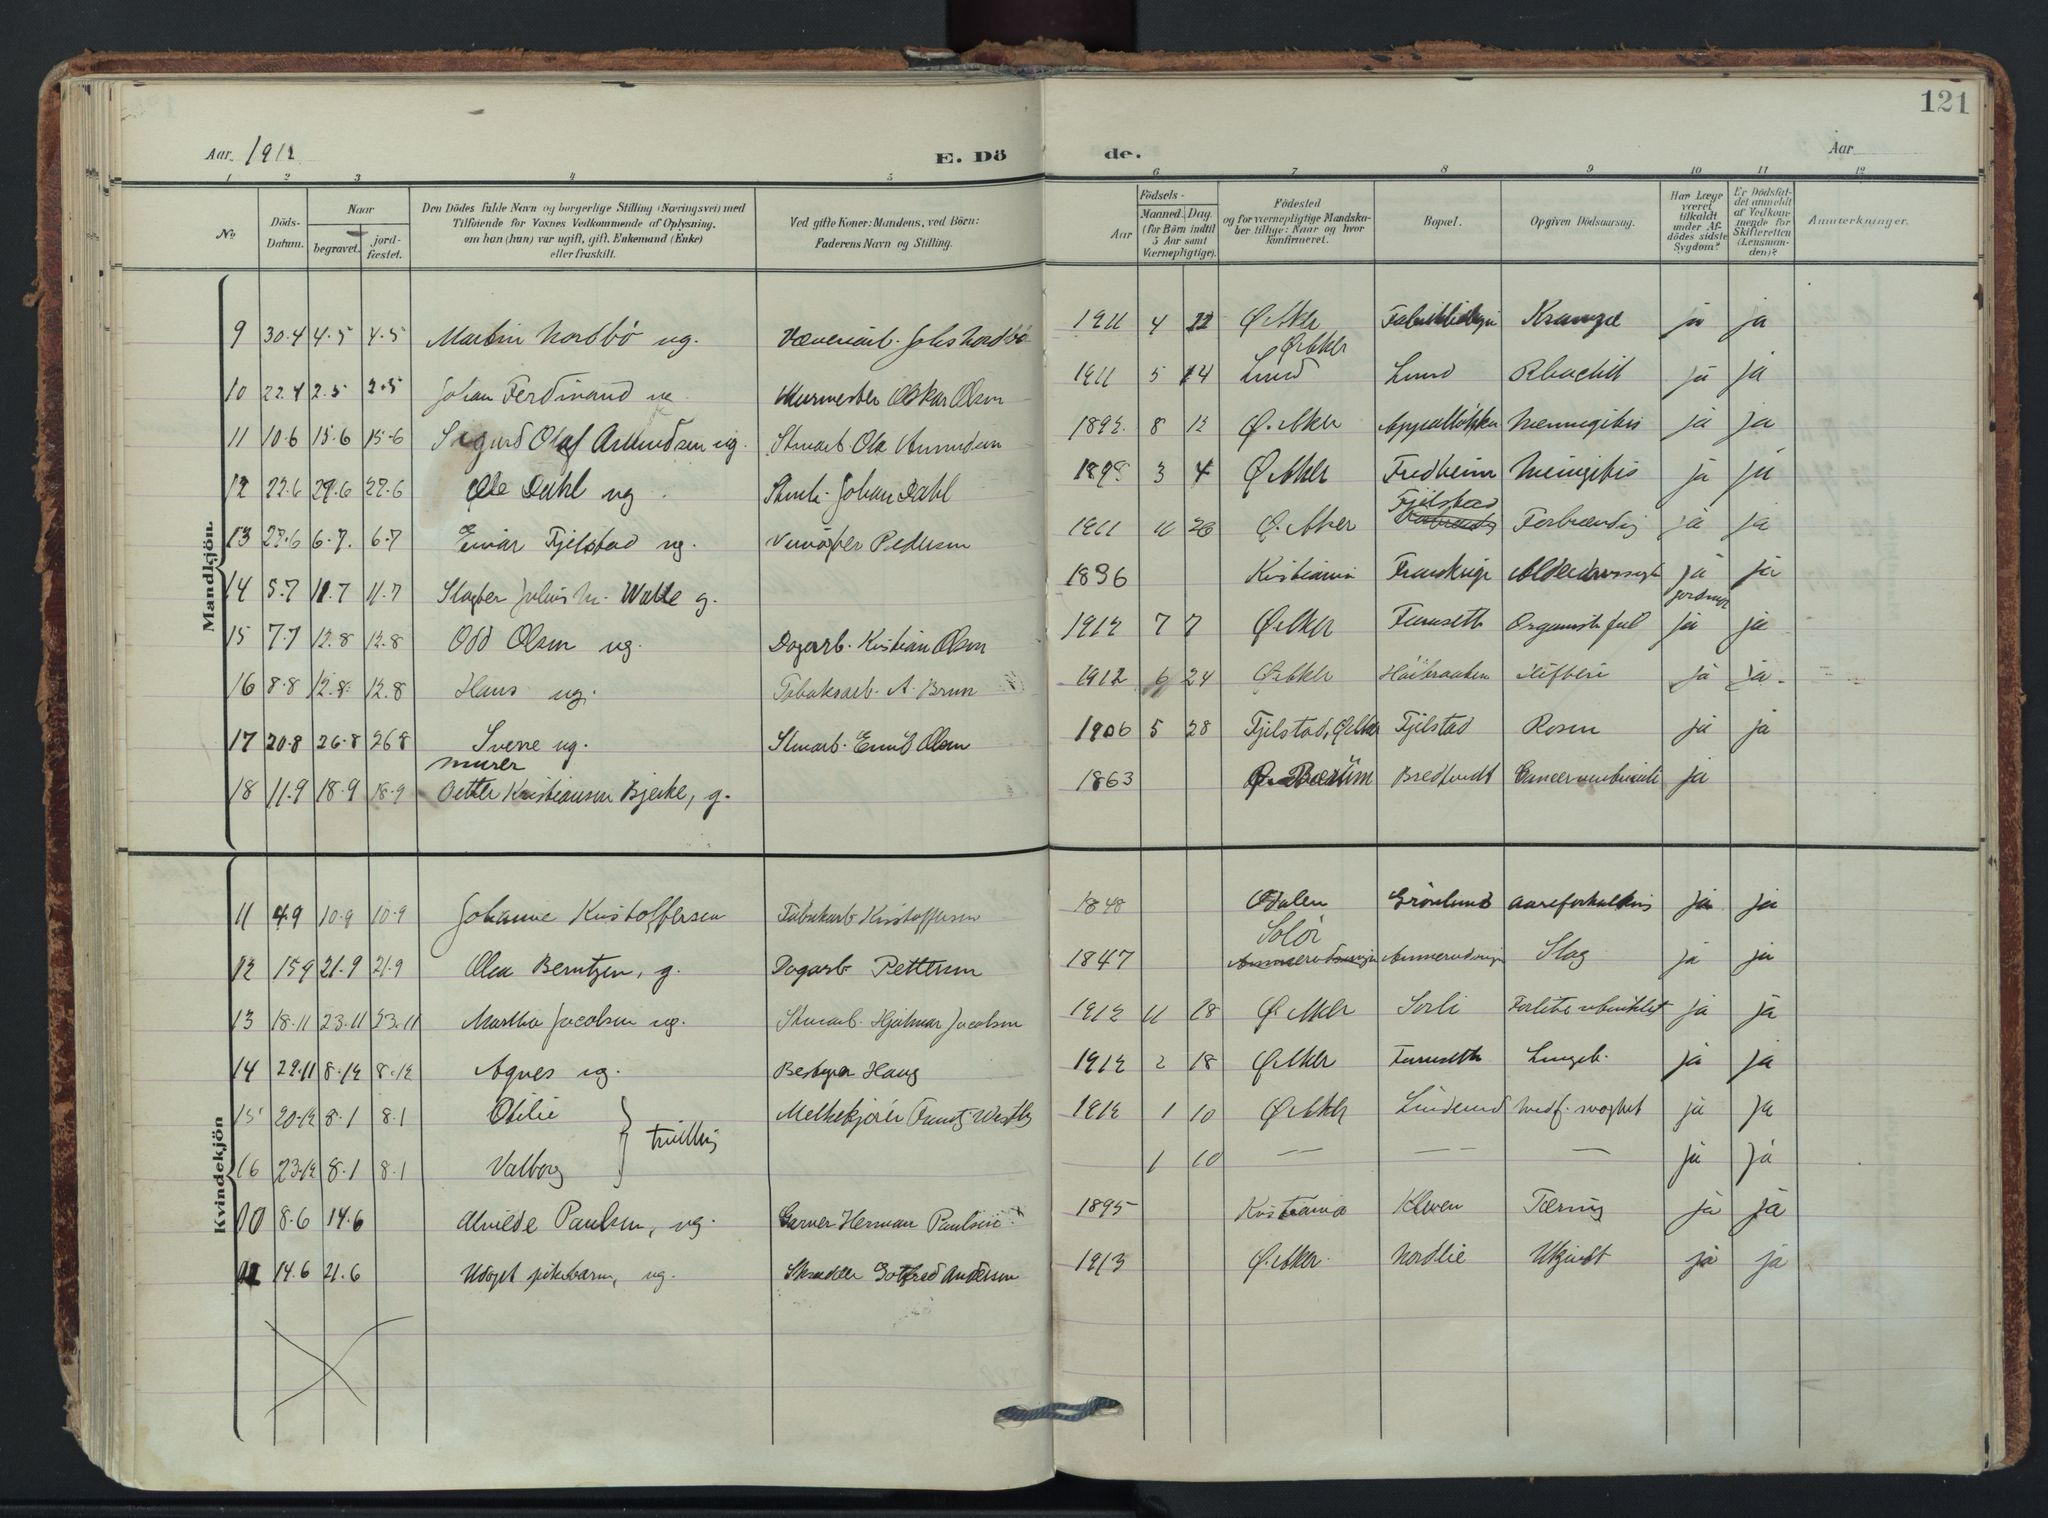 121
Aar. 1912 E. Dö de. Aar
1 2 3 4 5 6 7 8 9 10 11 12
No. Döds-Datum. Naar begravet. jord-fæstet. Den Dödes fulde Navn og borgerlige Stilling (Næringsvei) med Tilföiende for Voxnes Vedkommende af Oplysning, om han (hun) var ugift, gift, Enkemand (Enke) eller fraskilt. Ved gifte Koner: Mandens, ved Börn: Faderens Navn og Stilling. Födsels- Aar Maaned. Dag. (for Börn indtil 5 Aar samt Værnepligtige). Födested og for værnepligtige Mandskaber tillige: Naar og hvor konfirmeret. Bopæl. Opgiven Dödsaarsag. Har Læge været tilkaldt under Afdödes sidste Sygdom? Er Dödsfaldet anmeldt af Vedkommende for Skifteretten (Lensmanden)? Anmerkninger.
Mandkjön.
9 30.4 4.5 4.5 Martin Nordbö ug. Væveriarb. Johs Nordbö 1911 4 22 Ø. Aker Krampe ja ja
10 22.4 2.5 2.5 Johan Ferdinand ug. Murmester Oskar Olsen 1911 5 14 Lund Ø. Aker Lund Rhachit ja ja
11 10.6 15.6 15.6 Sigurd Olaf Amundsen ug. Stenarb. Ole Amundsen 1892 8 12 Ø. Aker Appelløkka Mennigitis ja ja
12 22.6 29.6 29.6 Ole Dahl ug. Stenh. Johan Dahl 1898 3 4 Ø. Aker Fredheim Meningitis ja ja
13 27.6 6.7. 6.7 Einar Fjelstad ug. Pedersen 1911 11 26 Ø. Aker Fjelstad Forbrænding ja ja
14 5.7 11.7 11.7 Slagter Julius M. Walle g. 1836 Kristiania Alderdomssvagh ja jordmor ja
15 7.7 12.8 12.8 Odd Olsen ug. Dagarb. Kristian Olsen 1912 7 7 Ø. Aker Furuseth Organisk feil ja ja
16 8.8 12.8. 12.8 Hans ug. Tobaksarb. A. Brun 1912 6 24 Ø. Aker Höibraaten ja ja
17 20.8 26.8 26.8 Sverre ug. Stenarb. Emil Olsen 1906 5 28 Fjelstad, Ø. Aker Fjelstad Rosen ja ja
18 11.9 18.9 18.9 murer Petter Kristiansen Bjerke, g. 1863 Bærum Bredtvedt Cancer ventriculi ja
Kvindekjön
11 4.9 10.9 10.9 Johanne Kristoffersen Tobakarb Kristoffersen 1848 Odalen Grönlund aareforkalkning ja ja
12 15.9 21.9 21.9 Olea Berntzen, g. Dagarb Pettersen 1847 Solör Ammerudengen Slag ja ja
13 18.11 23.11 23.11 Martha Jacobsen ug. Stenarb. Hjalmar Jacobsen 1912 11 18 Ø. Aker Sorli For lite utviklet ja ja
14 29.11 8.12 8.12 Agnes ug. Bestyrer Haug 1912 2 18 Ø. Aker Furuseth Lungeb. ja ja
15 20.12 8.1 8.1 Otilie } tvilling Melkekjörer Frantz Westby 1912 1 10 Ø. Aker Linderud Medf. svaghet ja ja
16 23.12 8.1 8.1 Valborg 1 10 — — — — ja ja
10 8.6 14.6 Alvilde Paulsen, ug. Garver Herman Paulsen 1895 Kristiania Kleven Tæring ja ja
11 14.6 21.6 Udøpt pikebarn, ug. Skrædder Gotfred Andersen 1913 Ø. Aker. Nordlie Ukjendt ja ja